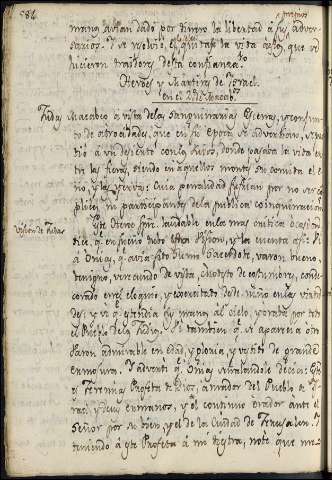 584
mano avian dado por dinero la libertad a sus adver-
sarios. Y se resolvió, el quitarse la vida a los, que se
hicieron traidores desta confianza.
Heroes y Martires de Israel
en el 2do Macab.
Judas Macabeo a vista de las sanguinarias Esenas, y conjun-
to de atrocidades, que en su Epoca se advertian, se
tiró a un desierto con los suios, donde pasava la vida en
tre las fieras, siendo en aquellos montes su comida el he
no, y las yervas: Cuia penalidad sufrian por no ser com
plices, ni participantes de la publica coinquinacion.
Vision de Judas
Este Heroe fue laudable en la mas critica ocasion
dice, q en sueño tubo esta Vision, y la cuenta asi: Vi
a Onias, q avia sido Sumo Sacerdote, varon bueno,
benigno, verecundo de vista, modesto de costumbres, conde-
corado en el eloquio, y exercitado desde niño en las virtu
des: y vi q estendia sus manos al cielo, y oraba por todo
el Pueblo de los Judios. Vi tambien q se aparecia otro
Varon admirable en edad, y gloria, y vestido de grande
ermosura. Y advertí q Onias señalandole decia: Este
es Jeremias Profeta de Dios, amador del Pueblo de Is
rael, y de sus ermanos, y el continuo orador ante el
Señor por su bien, y el de la Ciudad de Jerusalen. Y
teniendo a este Profeta a mi diestra, noté que me